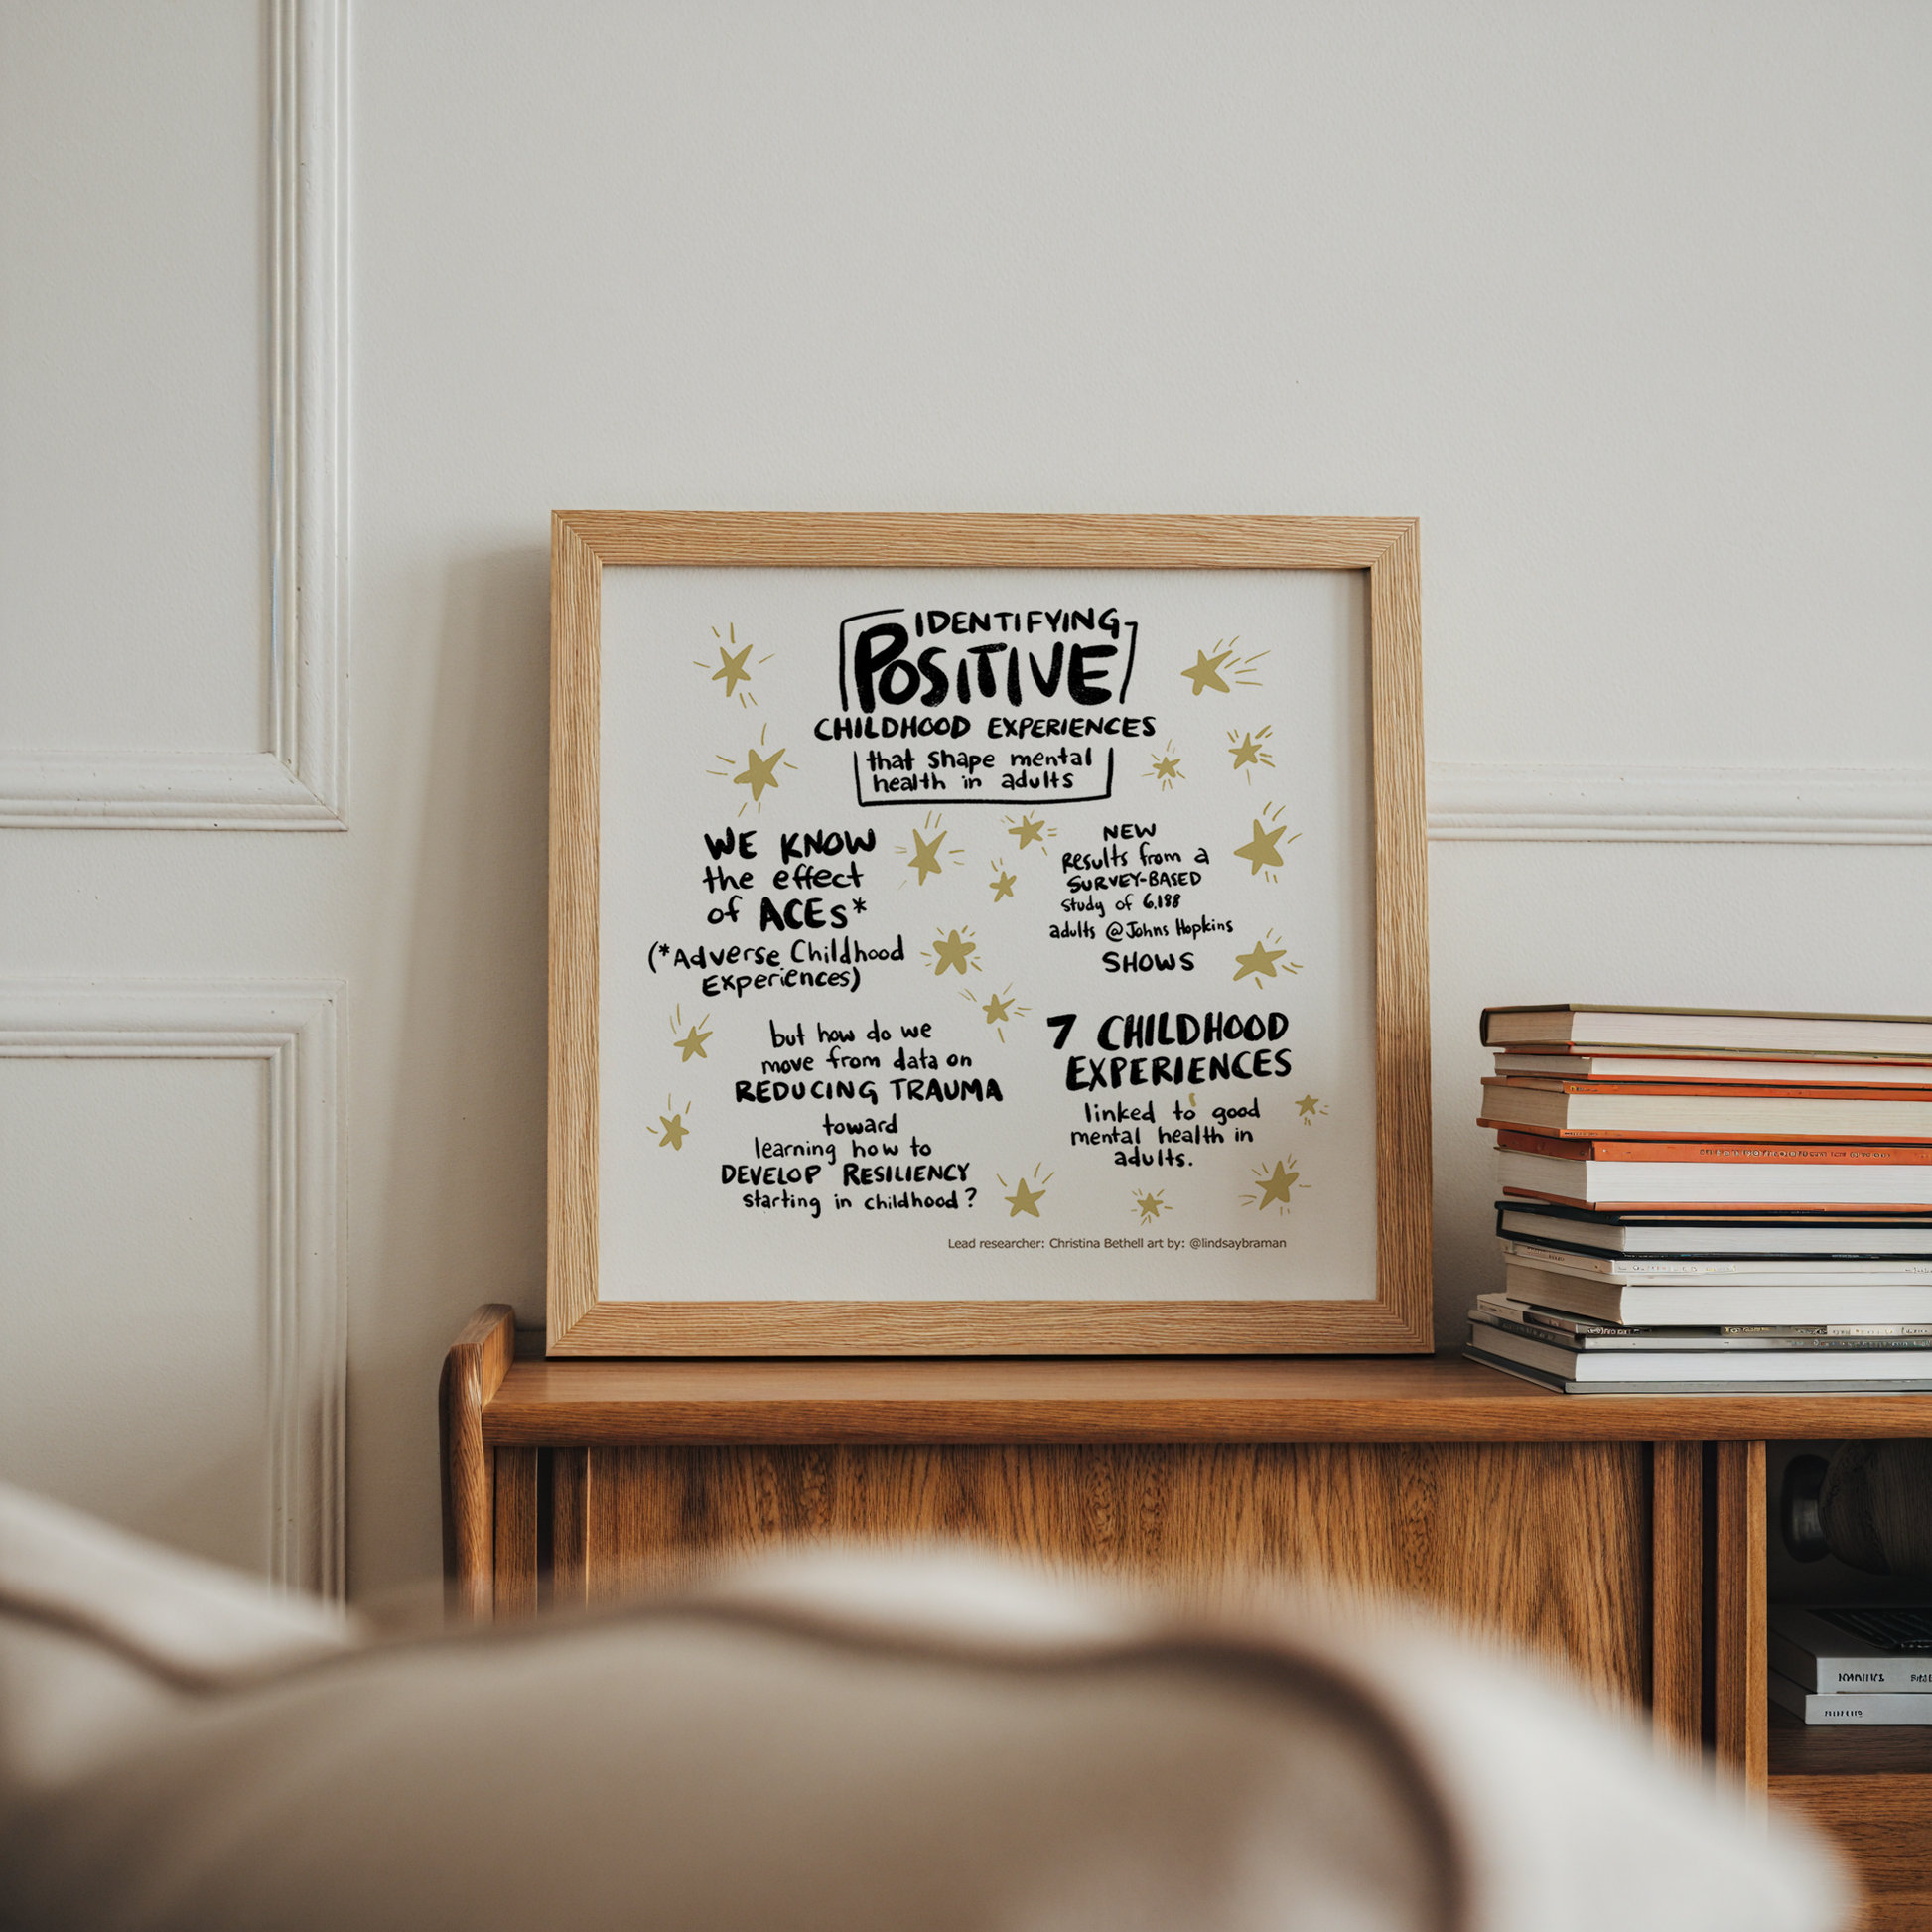 IDENTIFYING
POSITIVE
CHILDHOOD EXPERIENCES
that shape mental
health in adults
WE KNOW
the effect
of ACEs*
(*Adverse Childhood
Experiences)
but how do we
move from data on
REDUCING TRAUMA
toward
learning how to
DEVELOP RESILIENCY
starting in childhood?
NEW
Results from a
SURVEY-BASED
study of 6,188
adults @Johns Hopkins
SHOWS
7 CHILDHOOD
EXPERIENCES
linked to good
mental health in
adults.
Lead researcher: Christina Bethell art by: @lindsaybraman